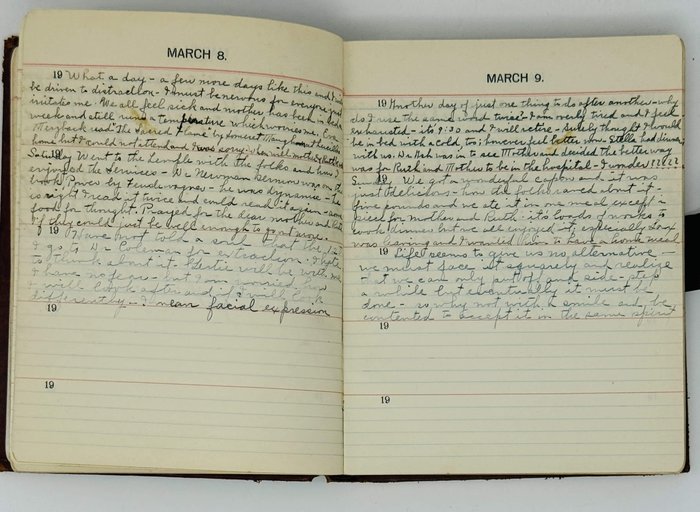 MARCH 8.
19 What a day - a few more days like this and I will
be driven to distraction - I must be nervous for everyone just
irritates me. We all feel sick and mother has been in bed a
week and still runs a temperature which worries me. Cora
read "The Sacred Flame" by Somerset Maugham
home but I could not attend and I was sorry
Saturday Went to the temple with the folks and how I
enjoyed the services - Dr. Newman sermon was on the
book Power by Feuchtwanger - he was dynamic - he
is right I read it twice and could read it again - some
food for thought. Prayed for the dear mother and Ruth
if they could just be well enough to go at once -
19 I have not told a soul that
I go to Dr. Coleman for extraction. I hate
to think about it - will be with me
I have no fear but I am worried how
I will look after and if I will look
differently - I mean facial expression
19
19
MARCH 9.
19 Another day of just one thing to do after another - why
do I use the same word twice? I am overly tired and I feel
exhausted - its 9:30 and I will retire - surely thought I would
be in bed with a cold, too; however feel better now - Stella had dinner
with us. Dr. was in to see Mother and decided the better way
was for Ruth and Mother to be in the hospital - I wonder ?????
Sunday 19 We got a wonderful capon and it was
just delicious - how the folks raved about it -
five pounds and we ate it in one meal except a
piece for mother and Ruth - its loads of work to
cook dinner but we all enjoyed it, especially
was leaving and I wanted them to have a home meal
19 Life seems to give us no alternative -
we must face it squarely and realize
that we can only put off and side-step
a while but eventually it must be
done - so why not with a smile and be
contented to accept it in the same spirit
19
19